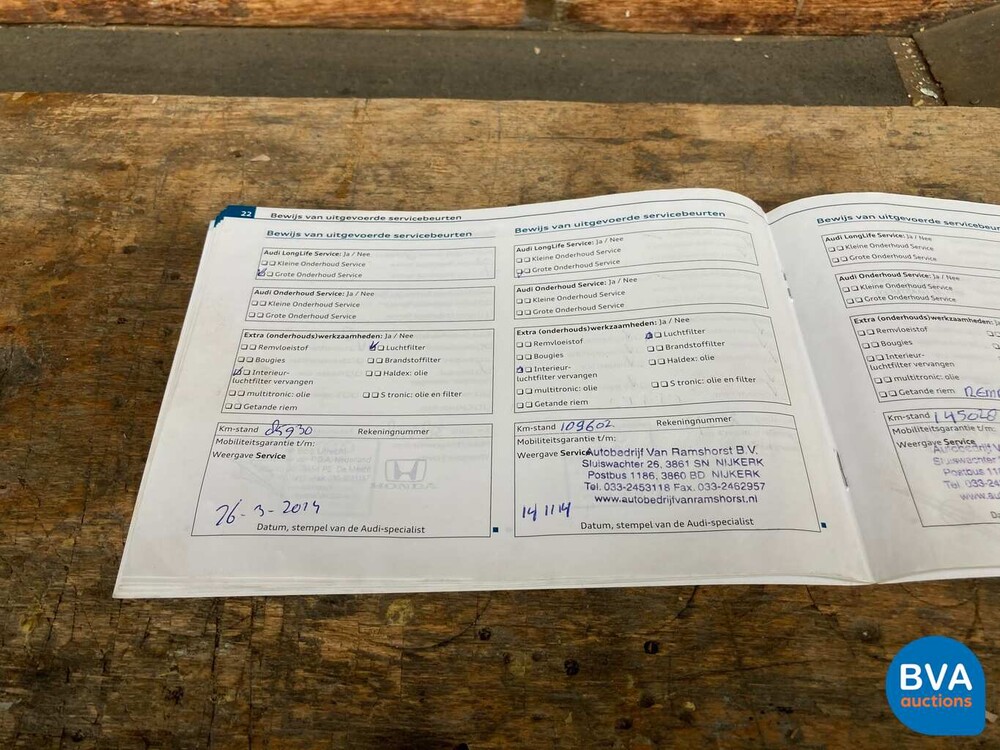 22 Bewijs van uitgevoerde servicebeurten
Bewijs van uitgevoerde servicebeurten
Audi LongLife Service: Ja / Nee
Kleine Onderhoud Service
Grote Onderhoud Service
Audi Onderhoud Service: Ja / Nee
Kleine Onderhoud Service
Grote Onderhoud Service
Extra (onderhouds)werkzaamheden: Ja / Nee
Remvloeistof Luchtfilter
Bougies Brandstoffilter
Interieur- Haldex: olie
luchtfilter vervangen
multitronic: olie S tronic: olie en filter
Getande riem
Km-stand 85930 Rekeningnummer
Mobiliteitsgarantie t/m:
Weergave Service
HONDA
26-3-2014
Datum, stempel van de Audi-specialist
Bewijs van uitgevoerde servicebeurten
Audi LongLife Service: Ja / Nee
Kleine Onderhoud Service
Grote Onderhoud Service
Audi Onderhoud Service: Ja / Nee
Kleine Onderhoud Service
Grote Onderhoud Service
Extra (onderhouds)werkzaamheden: Ja / Nee
Remvloeistof Luchtfilter
Bougies Brandstoffilter
Interieur- Haldex: olie
luchtfilter vervangen
multitronic: olie S tronic: olie en filter
Getande riem
Km-stand 109602 Rekeningnummer
Mobiliteitsgarantie t/m:
Weergave Service Autobedrijf Van Ramshorst B.V.
Sluiswachter 26, 3861 SN NIJKERK
Postbus 1186, 3860 BD NIJKERK
Tel. 033-2453118 Fax. 033-2462957
www.autobedrijfvanramshorst.nl
14 11 14
Datum, stempel van de Audi-specialist
Bewijs van uitgevoerde servicebeur
Audi LongLife Service: Ja / Nee
Kleine Onderhoud Service
Grote Onderhoud Service
Audi Onderhoud Service: Ja / Nee
Kleine Onderhoud Service
Grote Onderhoud Service
Extra (onderhouds)werkzaamheden:
Remvloeistof
Bougies
Interieur-
luchtfilter vervangen
multitronic: olie
Getande riem
Km-stand
Mobiliteitsgarantie t/m:
Weergave Service Autobedrijf
Sluiswachter
Postbus 118
Tel. 033-24
www.au
BVA
auctions